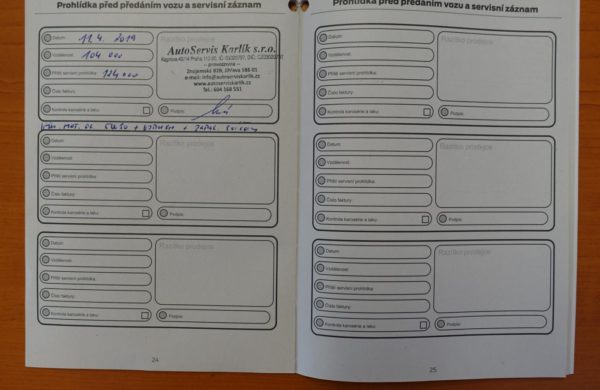 Prohlídka před předáním vozu a servisní záznam
Datum: 11.4. 2019
Vzdálenost: 104 000
Příští servisní prohlídka: 124 000
Číslo faktury:
Kontrola karosérie a laku:
Razítko prodejce
AutoServis Karlík s.r.o.
- provozovna -
Znojemská 82B, Jihlava 586 01
e-mail: info@autoserviskarlik.cz
www.autoserviskarlik.cz
Tel.: 604 160 551
Podpis:
Datum:
Vzdálenost:
Příští servisní prohlídka:
Číslo faktury:
Kontrola karosérie a laku:
Razítko prodejce
Podpis:
Datum:
Vzdálenost:
Příští servisní prohlídka:
Číslo faktury:
Kontrola karosérie a laku:
Razítko prodejce
Podpis:
24
Prohlídka před předáním vozu a servisní záznam
Datum:
Vzdálenost:
Příští servisní prohlídka:
Číslo faktury:
Kontrola karosérie a laku:
Razítko prodejce
Podpis:
Datum:
Vzdálenost:
Příští servisní prohlídka:
Číslo faktury:
Kontrola karosérie a laku:
Razítko prodejce
Podpis:
Datum:
Vzdálenost:
Příští servisní prohlídka:
Číslo faktury:
Kontrola karosérie a laku:
Razítko prodejce
Podpis:
25